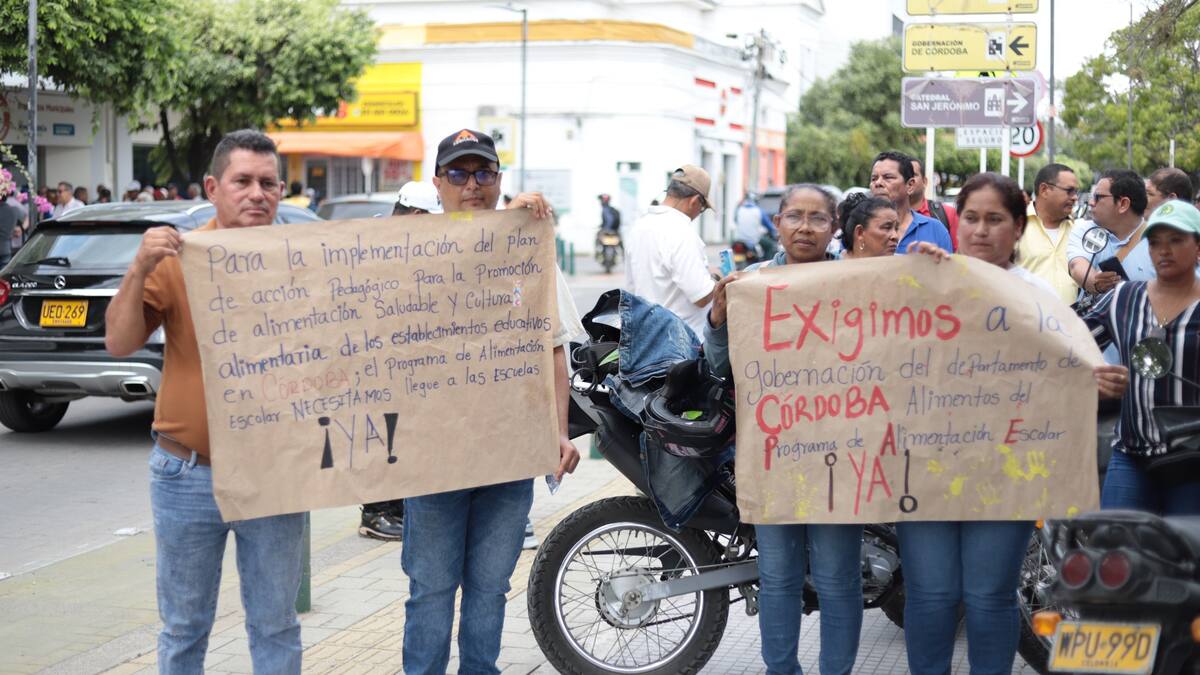 GOBERNACIÓN
DE CÓRDOBA
CATEDRAL
SAN JERÓNIMO
ESPACIO
SEGURO
20
UEQ 269
Para la implementación del plan
de acción Pedagógico Para la Promoción
de alimentación Saludable y Cultura
alimentaria de los establecimientos educativos
en CÓRDOBA; el Programa de Alimentación
Escolar NECESITAMOS llegue a las Escuelas
¡YA!
Exigimos a la
gobernación del departamento de
CÓRDOBA Alimentos del
Programa de Alimentación Escolar
¡YA!
WPU 99D
COLOMBIA